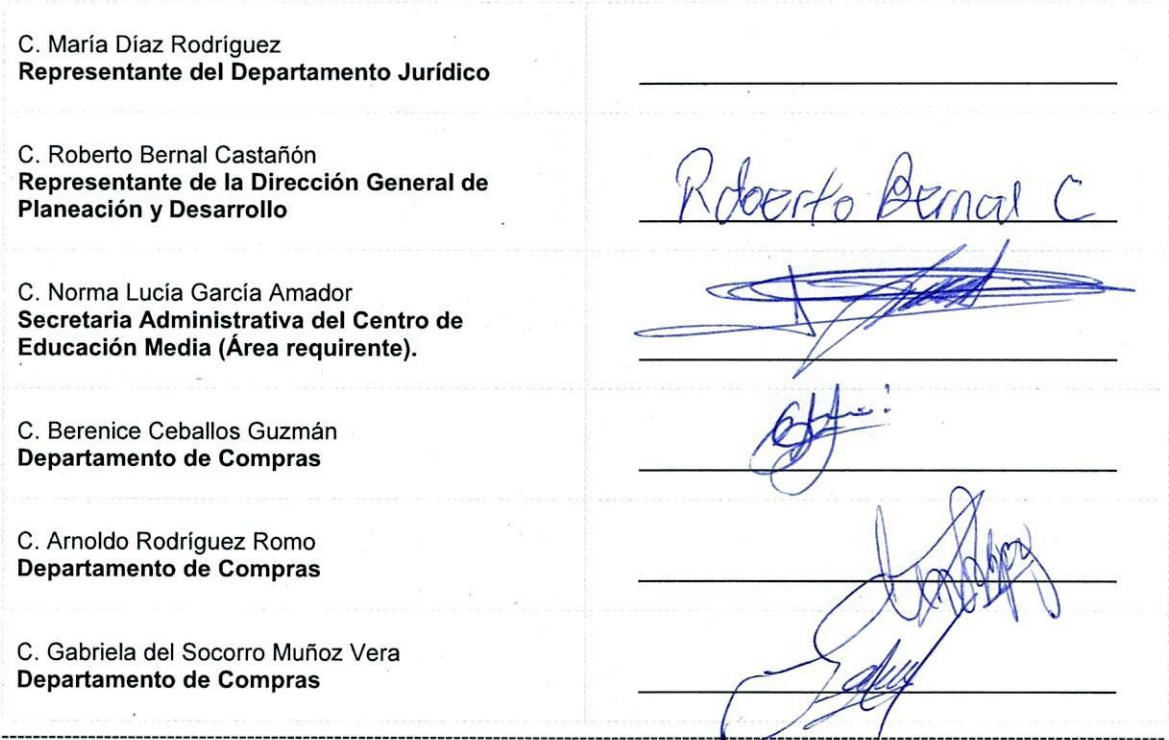 C. María Díaz Rodríguez
Representante del Departamento Jurídico
C. Roberto Bernal Castañón
Representante de la Dirección General de
Planeación y Desarrollo
Roberto Bernal C
C. Norma Lucía García Amador
Secretaria Administrativa del Centro de
Educación Media (Área requirente).
C. Berenice Ceballos Guzmán
Departamento de Compras
C. Arnoldo Rodríguez Romo
Departamento de Compras
C. Gabriela del Socorro Muñoz Vera
Departamento de Compras